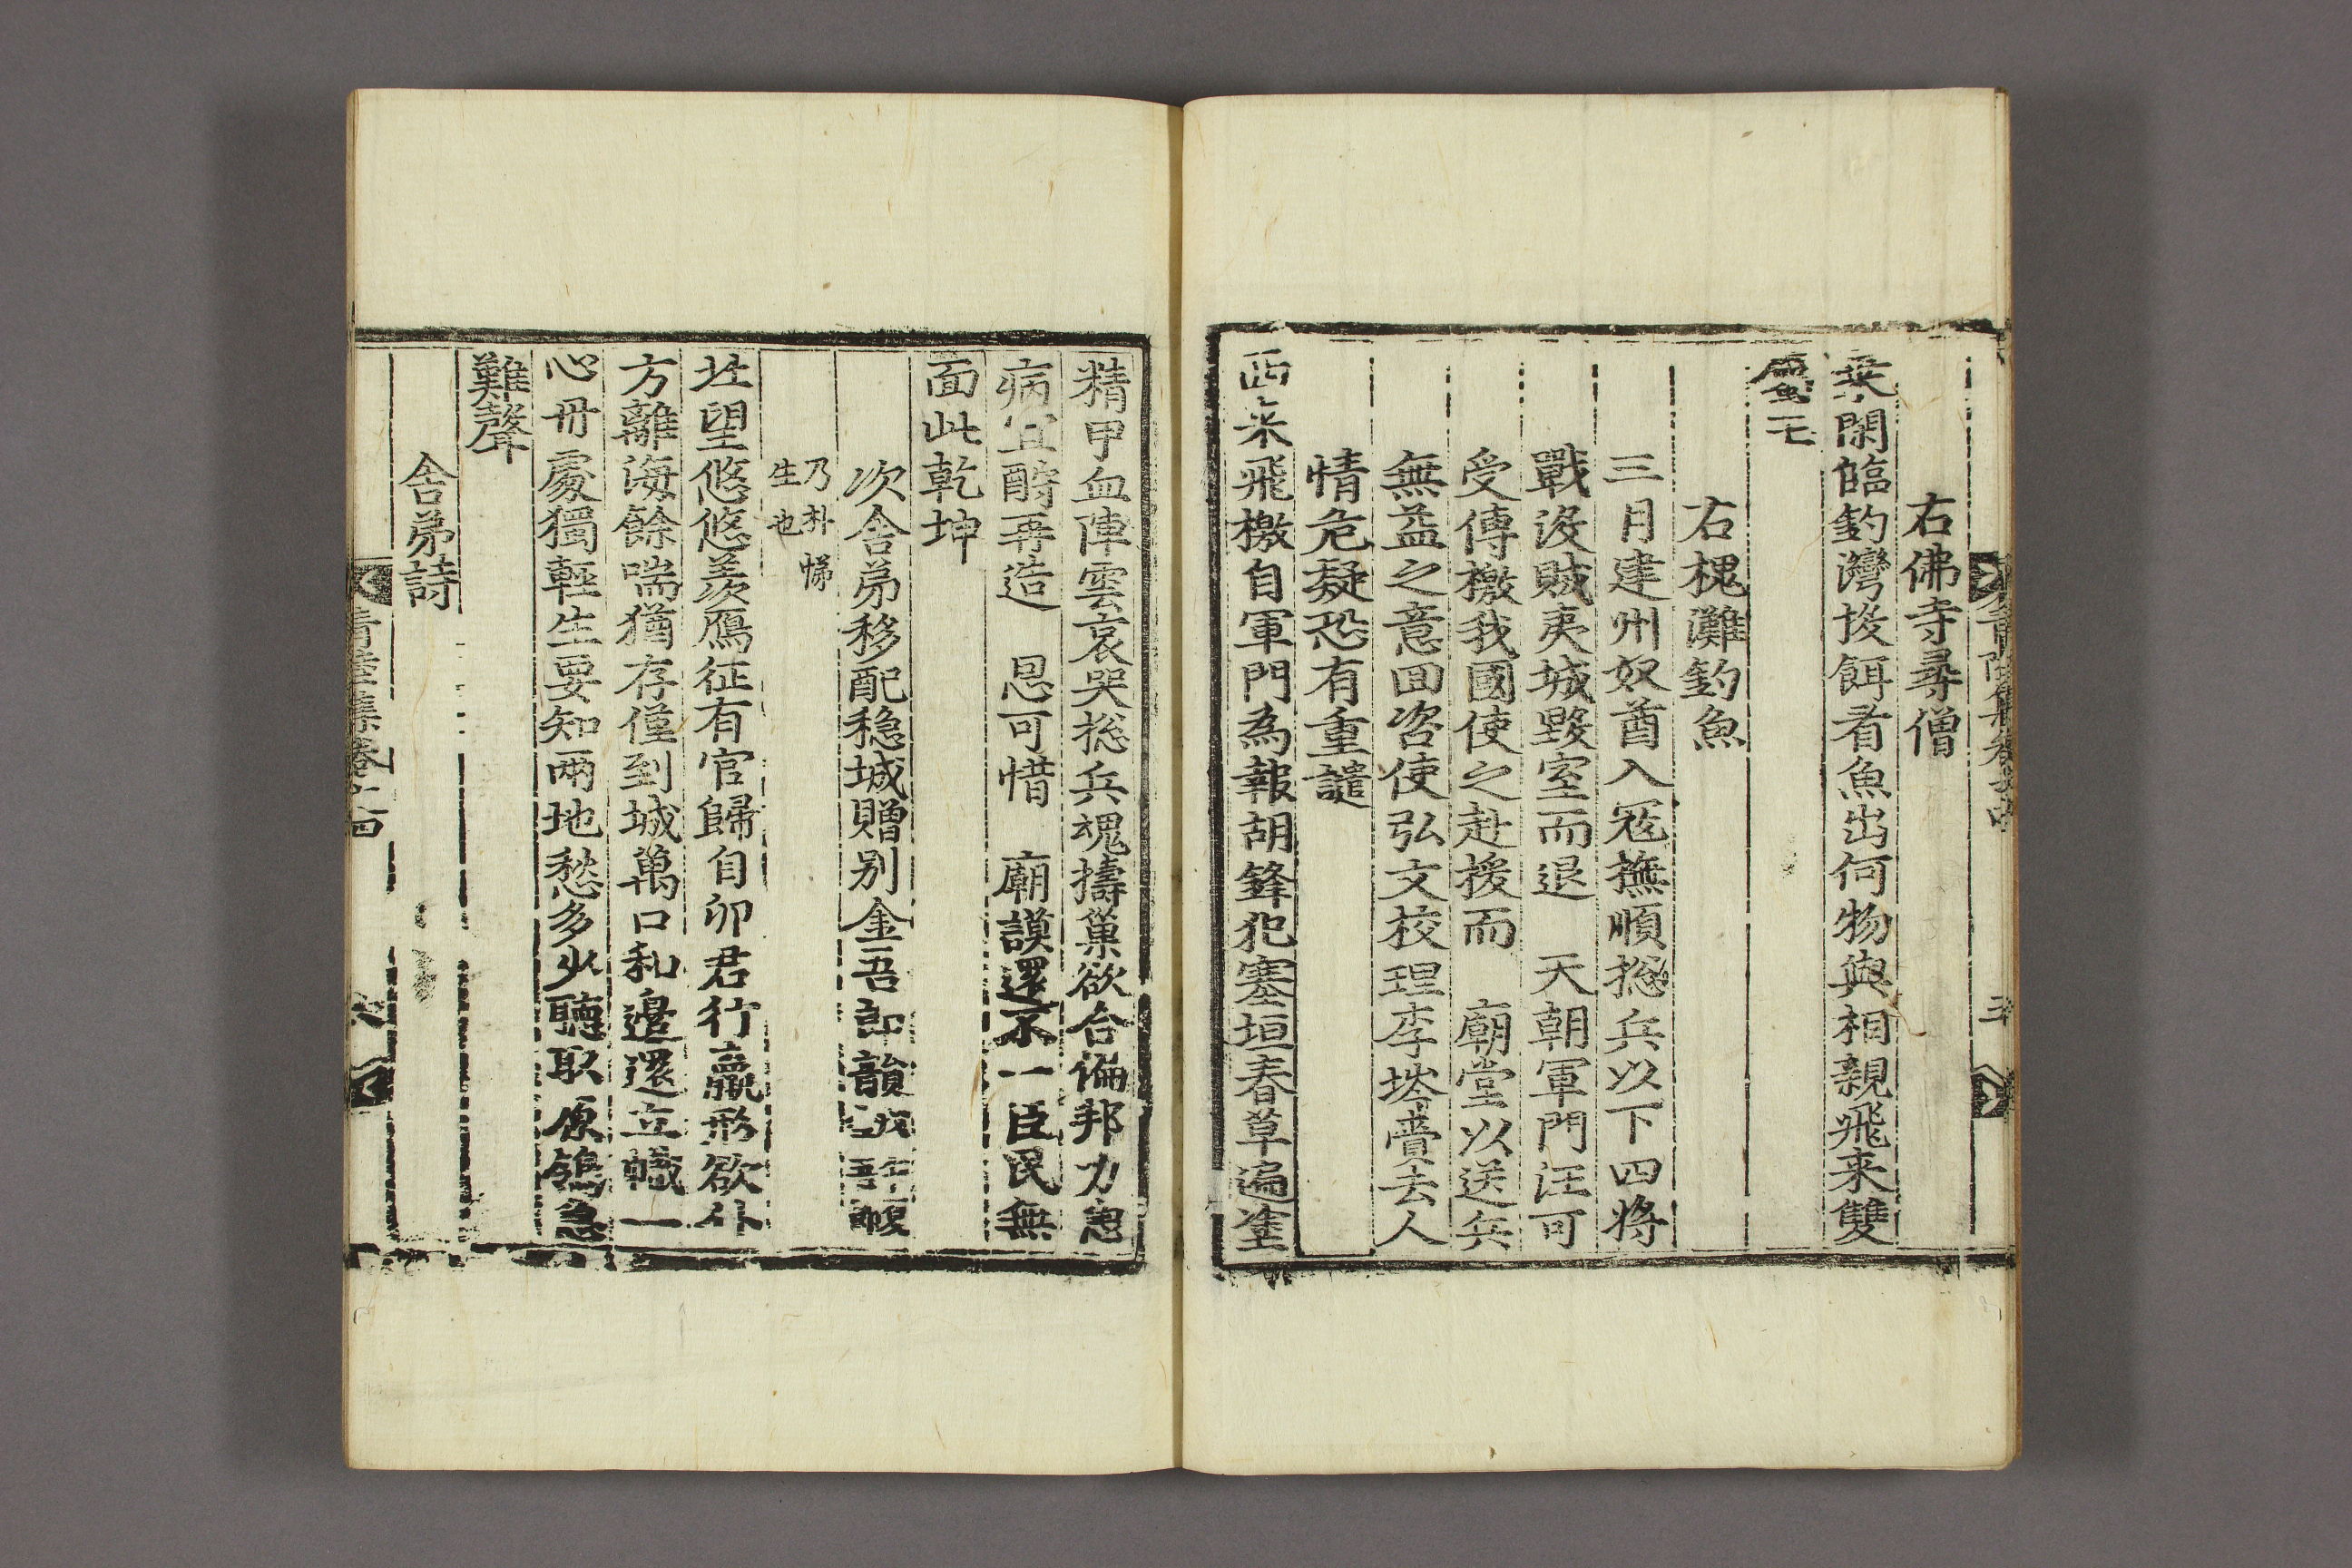 右佛寺尋僧
乗閑臨釣灣投餌看魚出何物與相親飛来雙
鷺一
右槐灘釣魚
三月建州奴酋入冦撫順揔兵以下四將
戰沒賊夷城毀室而退 天朝軍門汪可
受傳檄我國使之赴援而 廟堂以送兵
無益之意回咨使弘文校理李埁賫去人
情危疑恐有重譴
西来飛檄自軍門為報胡鋒犯塞垣春草遍塗
精甲血陣雲哀哭揔兵魂擣巢欲合偏邦力怠
病宜酧再造 恩可惜 廟謨還不一臣民無
面此乾坤
次舍弟移配穏城贈别金吾郎韻
乃朴悌
生也
北望悠悠羨鴈征有官歸自卯君行羸形欲仆
方離海餘喘猶存僅到城萬口和邉還立幟一
心毌處獨輕生要知兩地愁多少聽取原鴒急
難聲
舍弟詩
清陸集卷之四